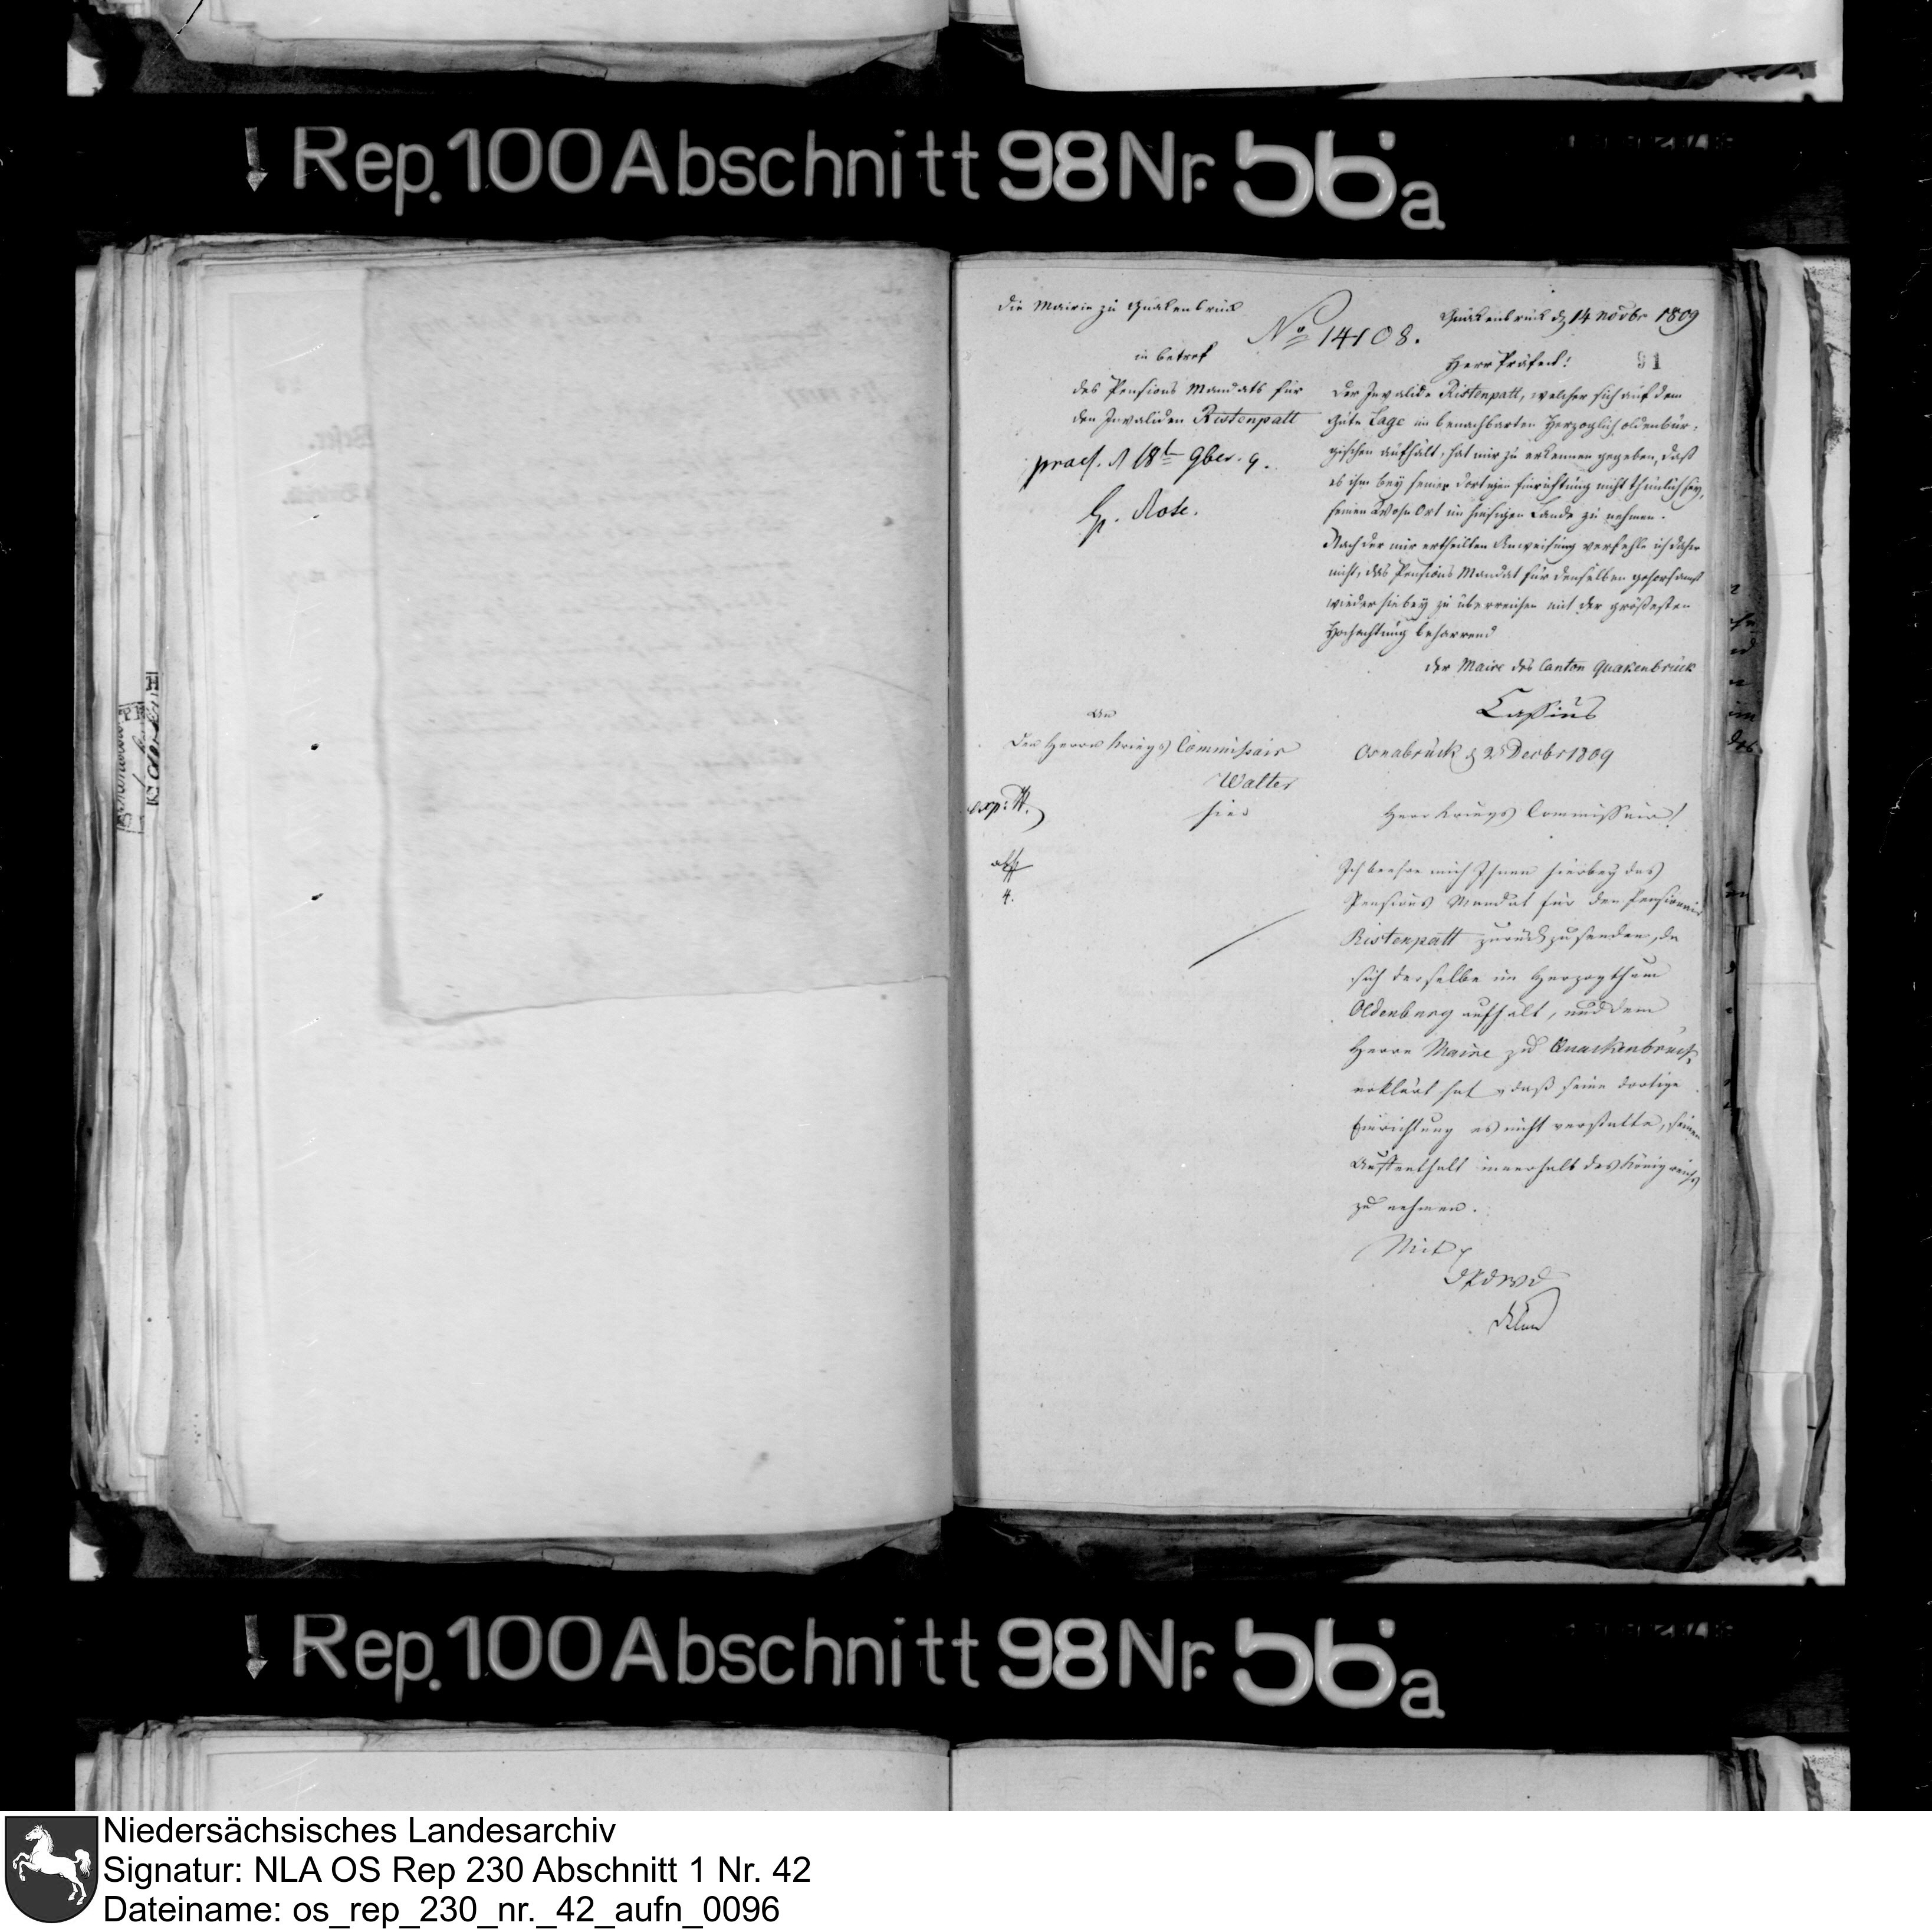 Rep. 100 Abschnitt 98 Nr. 56a
Die Mairie zu Quakenbrück
No 14108.
Quakenbrück d 14 Novbr 1809
91
in betref
des Pensions Mandats für
den Invaliden Ristenpatt
praes. d 18t 9ber. 9.
Herr Präfect!
Der Invalide Ristenpatt, welcher sich auf dem
Gute Lage im benachbarten Herzoglich oldenbur-
gischen aufhält, hat mir zu erkennen gegeben, daß
es ihm bey seiner dortigen Einrichtung nicht thunlich sey,
seinen WohnOrt im hiesigen Lande zu nehmen.
Nach der mir ertheilten Anweisung verfehle ich daher
nicht, das Pensions Mandat für denselben gehorsamst
wieder hiebey zu überreichen mit der größesten
Hochachtung beharrend
der Maire des Canton Quakenbrück
Cassius
An
Den Herrn Kriegs Commissair
Walter
hier
exp:
4.
Osnabrück d 2t Decbr 1809
Herr Kriegs Commissair!
Ich beehre mich Ihnen hierbey das
Pensions Mandat für den Pensionair
Ristenpatt zurückzusenden, da
sich derselbe im Herzogthum
Oldenburg aufhält, und dem
Herrn Maire zu Quackenbrück
erklärt hat, daß seine dortige
Einrichtung es nicht verstatte, seinen
Aufenthalt innerhalb des Königreichs
zu nehmen.
Mit
Rep. 100 Abschnitt 98 Nr. 56a
Niedersächsisches Landesarchiv
Signatur: NLA OS Rep 230 Abschnitt 1 Nr. 42
Dateiname: os_rep_230_nr._42_aufn_0096